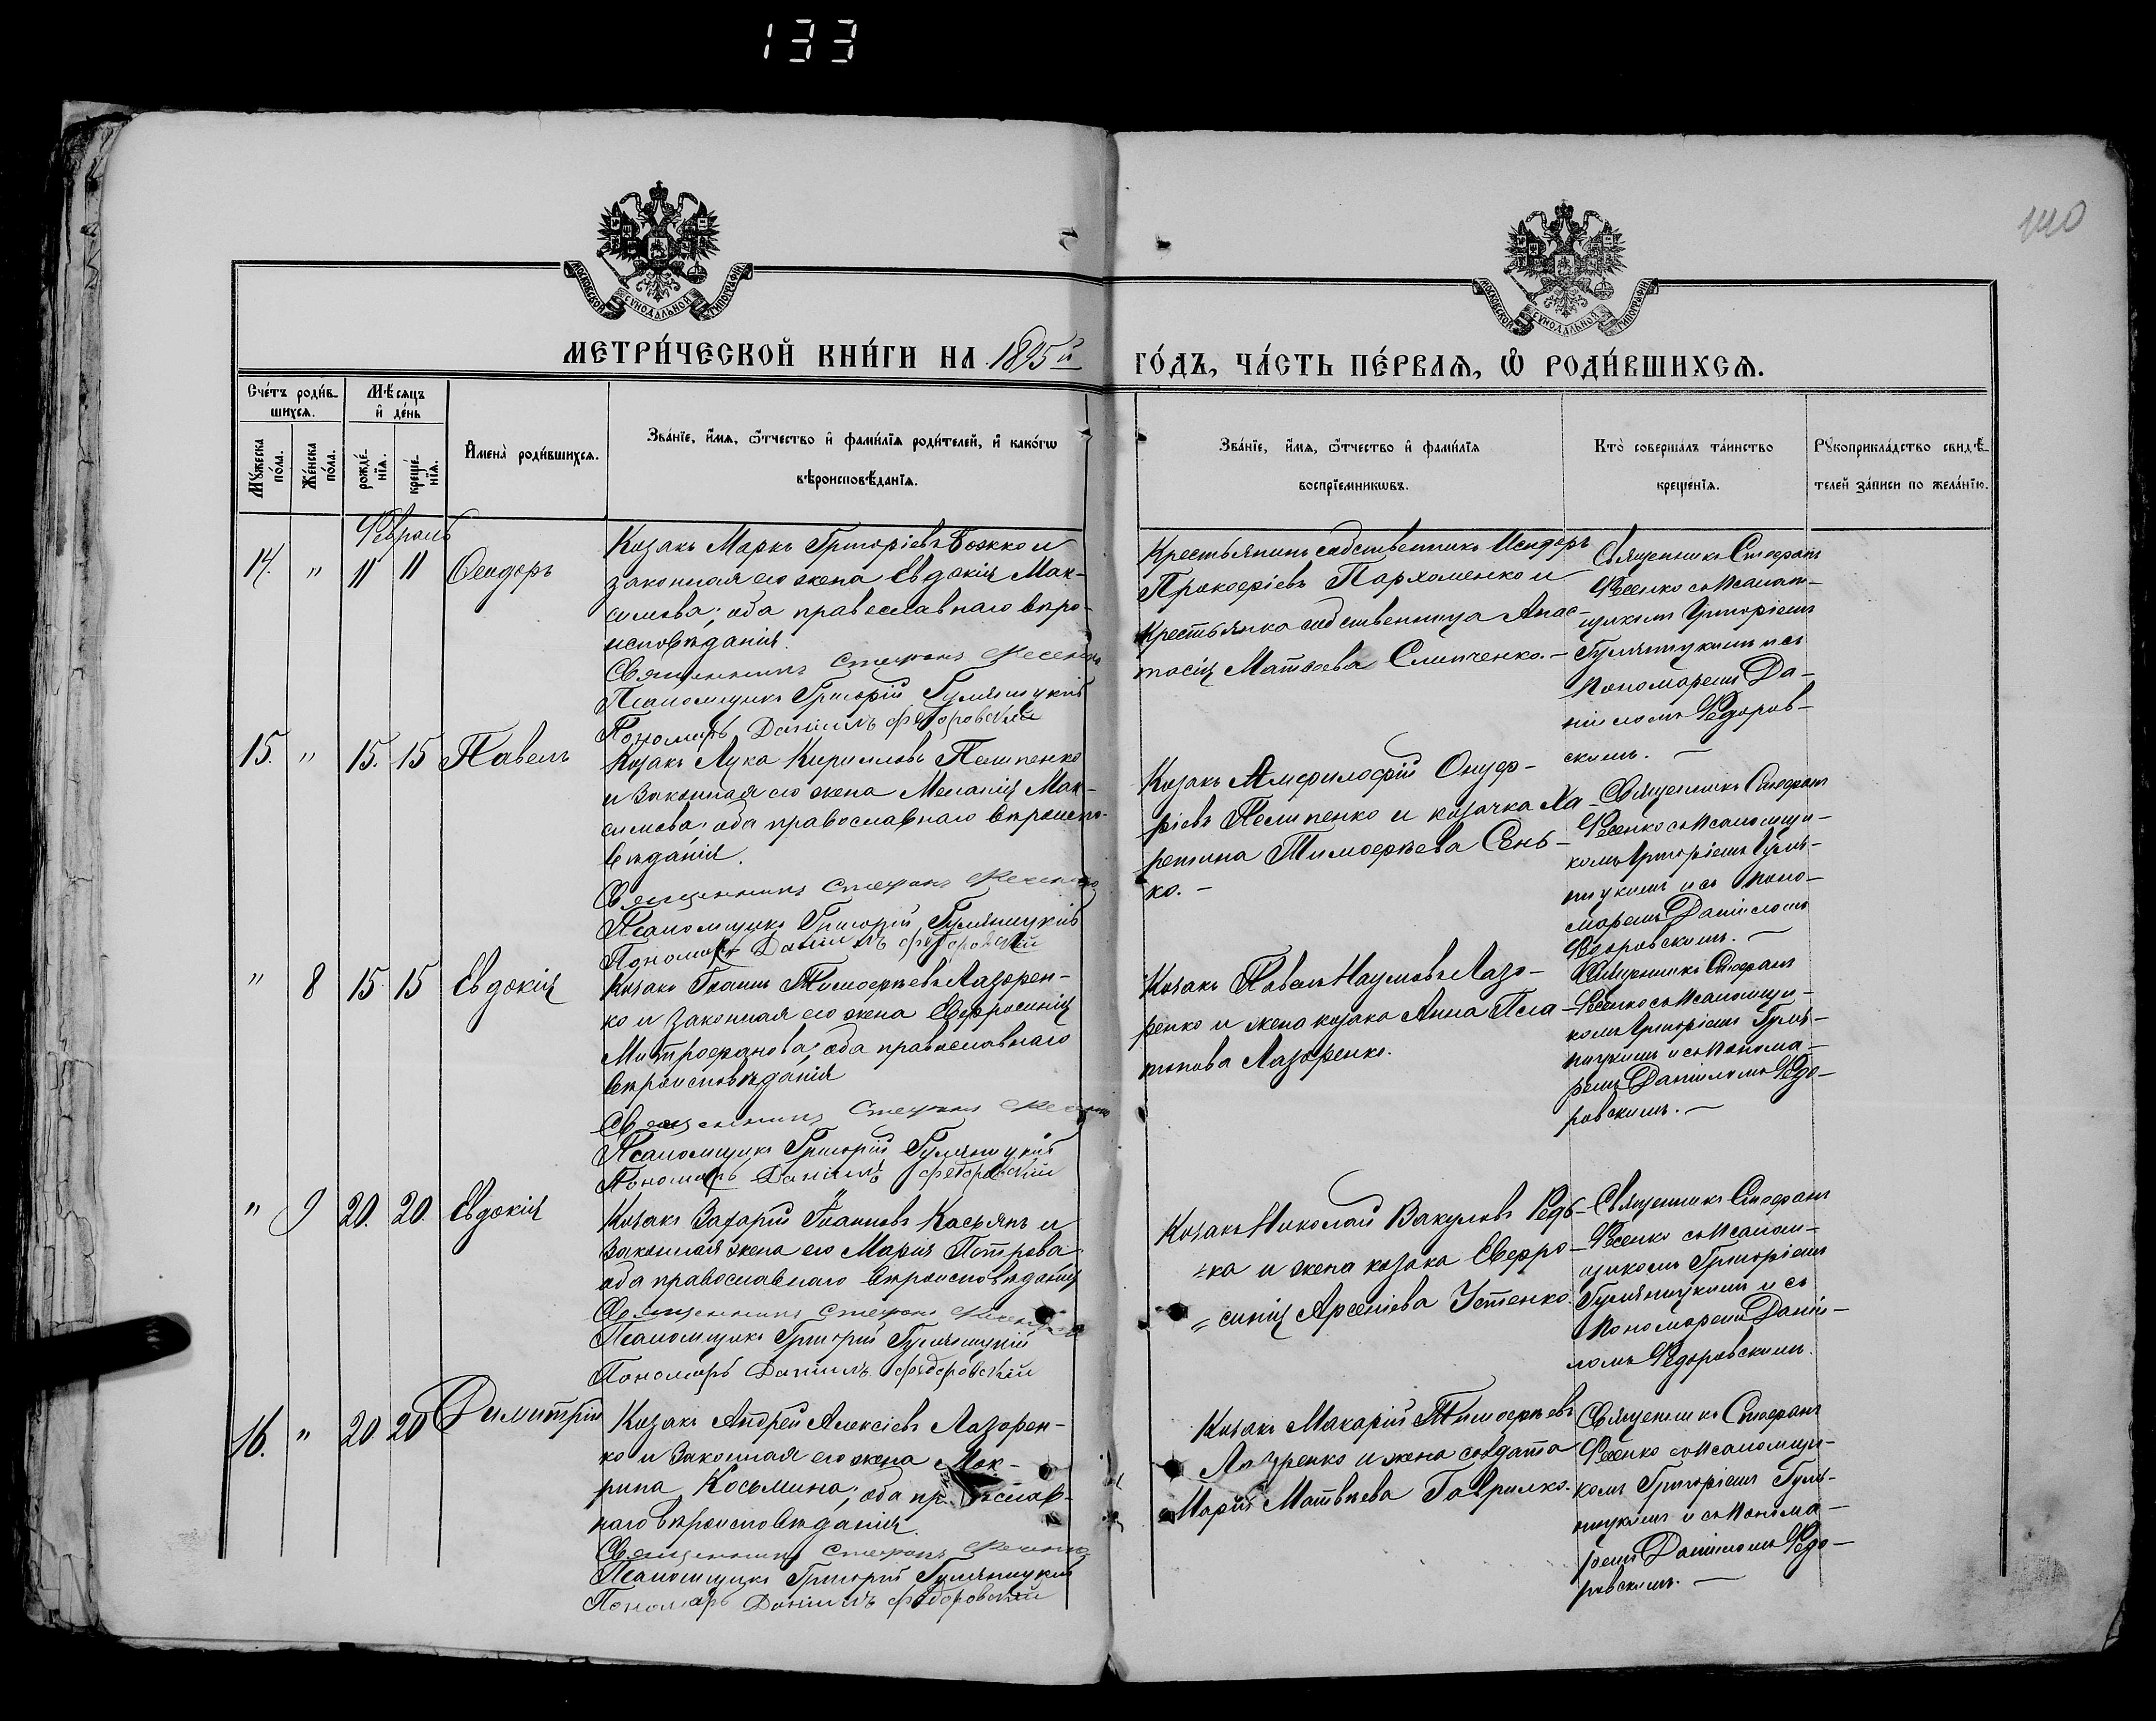 133
140
МОСКОВСКОЙ СѴНОДАЛЬНОЙ ТИПОГРАФІИ
МОСКОВСКОЙ СѴНОДАЛЬНОЙ ТИПОГРАФІИ
МЕТРИ́ЧЕСКОЙ КНИ́ГИ НА 1895й ГО́ДЪ, ЧА́СТЬ ПЕ́РВАѦ, Ѡ РОДИ́ВШИХСѦ.
Сче́тъ роди́в-
шихсѧ.
Мѣсѧцъ
и҆ де́нь
Мꙋ́жеска по́ла.
Же́нска по́ла.
рожде́-
нїѧ.
креще́-
нїѧ.
И҆мена̀ роди́вшихсѧ.
Зва́нїе, и҆́мѧ, ѻ҆́тчество и҆ фами́лїѧ роди́телей, и҆ како́гѡ
вѣроисповѣ́данїѧ.
Зва́нїе, и҆́мѧ, ѻ҆́тчество и҆ фами́лїѧ
воспрїе́мникѡвъ.
Кто̀ соверша́лъ та́инство
креще́нїѧ.
Рꙋкоприкла́дство свидѣ́-
телей за́писи по жела́нїю.
Февраль
14. " 11 11 Ѳеодоръ
Козакъ Маркъ Григоріевъ Божко и
законная его жена Евдокія Мак-
симова; оба православнаго вѣро-
исповѣданія.
Священникъ Стефанъ Фесенко
Псаломщикъ Григорій Гуляницкій
Пономарь Даніилъ Федоровскій
Крестьянинъ собственникъ Исидоръ
Прокофіевъ Пархоменко и
Крестьянка собственница Анас-
тасія Матвѣева Слипченко.-
Священникъ Стефанъ
Фесенко съ псалом-
щикомъ Григоріемъ
Гуляницкимъ и съ
пономаремъ Да-
ніиломъ Федоров-
скимъ. -
15. " 15. 15 Павелъ
Козакъ Лука Кирилловъ Пелипенко
и законная его жена Меланія Мак-
симова; оба православнаго вѣроиспо-
вѣданія.
Священникъ Стефанъ Фесенко
Псаломщикъ Григорій Гуляницкій
Пономарь Даніилъ Федоровскій
Козакъ Амфилофій Онуф-
ріевъ Пелипенко и козачка Ха-
ретина Тимофѣева Сень-
ко. -
Священникъ Стефанъ
Фесенко съ псаломщи-
комъ Григоріемъ Гуля-
ницкимъ и съ поно-
маремъ Даніиломъ
Федоровскимъ. -
" 8 15 15 Евдокія
Козакъ Іоаннъ Тимофѣевъ Лазорен-
ко и законная его жена Евфросинія
Митрофанова; оба православнаго
вѣроисповѣданія
Священникъ Стефанъ Фесенко
Псаломщикъ Григорій Гуляницкій
Пономарь Даніилъ Федоровскій
Козакъ Павелъ Наумовъ Лазо-
ренко и жена козака Анна Пла-
тонова Лазоренко.
Священникъ Стефанъ
Фесенко съ псаломщи-
комъ Григоріемъ Гуля-
ницкимъ и съ понома-
ремъ Даніиломъ Федо-
ровскимъ. -
" 9 20. 20. Евдокія
Козакъ Захарій Іоанновъ Касьянъ и
законная жена его Марія Петрова
оба православнаго вѣроисповѣданія
Священникъ Стефанъ Фесенко
Псаломщикъ Григорій Гуляницкій
Пономарь Даніилъ Федоровскій
Козакъ Николай Вакуловъ Редь-
=ка и жена козака Евфро-
=синія Арсеніева Устенко.
Священникъ Стефанъ
Фесенко съ псалом-
щикомъ Григоріемъ
Гуляницкимъ и съ
пономаремъ Даніи-
ломъ Федоровскимъ.
16. " 20 20 Димитрій
Козакъ Андрей Алексіевъ Лазорен-
ко и законная его жена Мак-
рина Косьмина; оба православ-
наго вѣроисповѣданія.
Священникъ Стефанъ Фесенко
Псаломщикъ Григорій Гуляницкій
Пономарь Даніилъ Федоровскій
Козакъ Макарій Тимофѣевъ
Лазоренко и жена солдата
Марія Матвѣева Гаврилко.
Священникъ Стефанъ
Фесенко съ псаломщи-
комъ Григоріемъ Гуля-
ницкимъ и съ понома-
ремъ Даніиломъ Федо-
ровскимъ. -